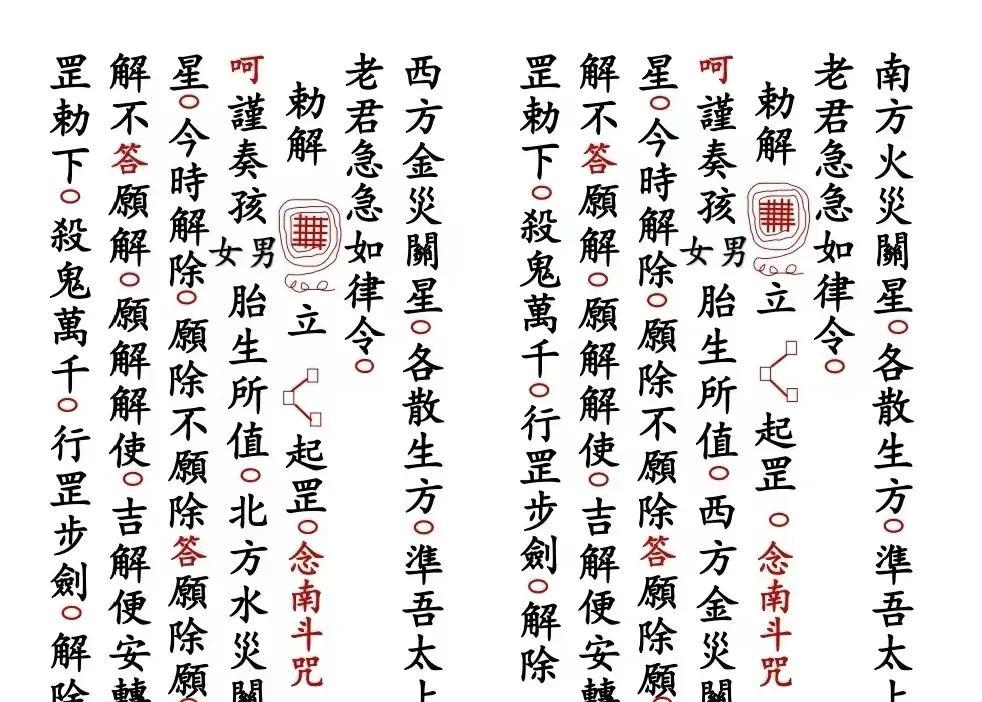 南方火災關星○各散生方○準吾太上
老君急急如律令○
勅解 立 起罡○念南斗咒
呵謹奏孩男女胎生所值○西方金災關
星○今時解除○願除不願除答願除願○
解不答願解○願解解使○吉解便安轉
罡勅下○殺鬼萬千○行罡步劍○解除
西方金災關星○各散生方○準吾太上
老君急急如律令○
勅解 立 起罡○念南斗咒
呵謹奏孩男女胎生所值○北方水災關
星○今時解除○願除不願除答願除願○
解不答願解○願解解使○吉解便安轉
罡勅下○殺鬼萬千○行罡步劍○解除